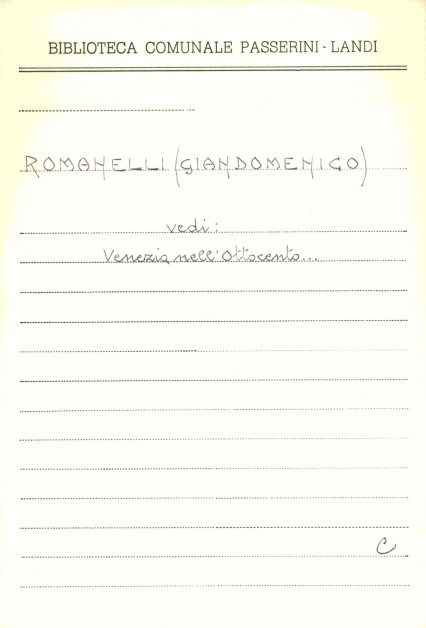 BIBLIOTECA COMUNALE PASSERINI - LANDI
ROMANELLI (GIANDOMENICO)
vedi:
Venezia nell'Ottocento...
C